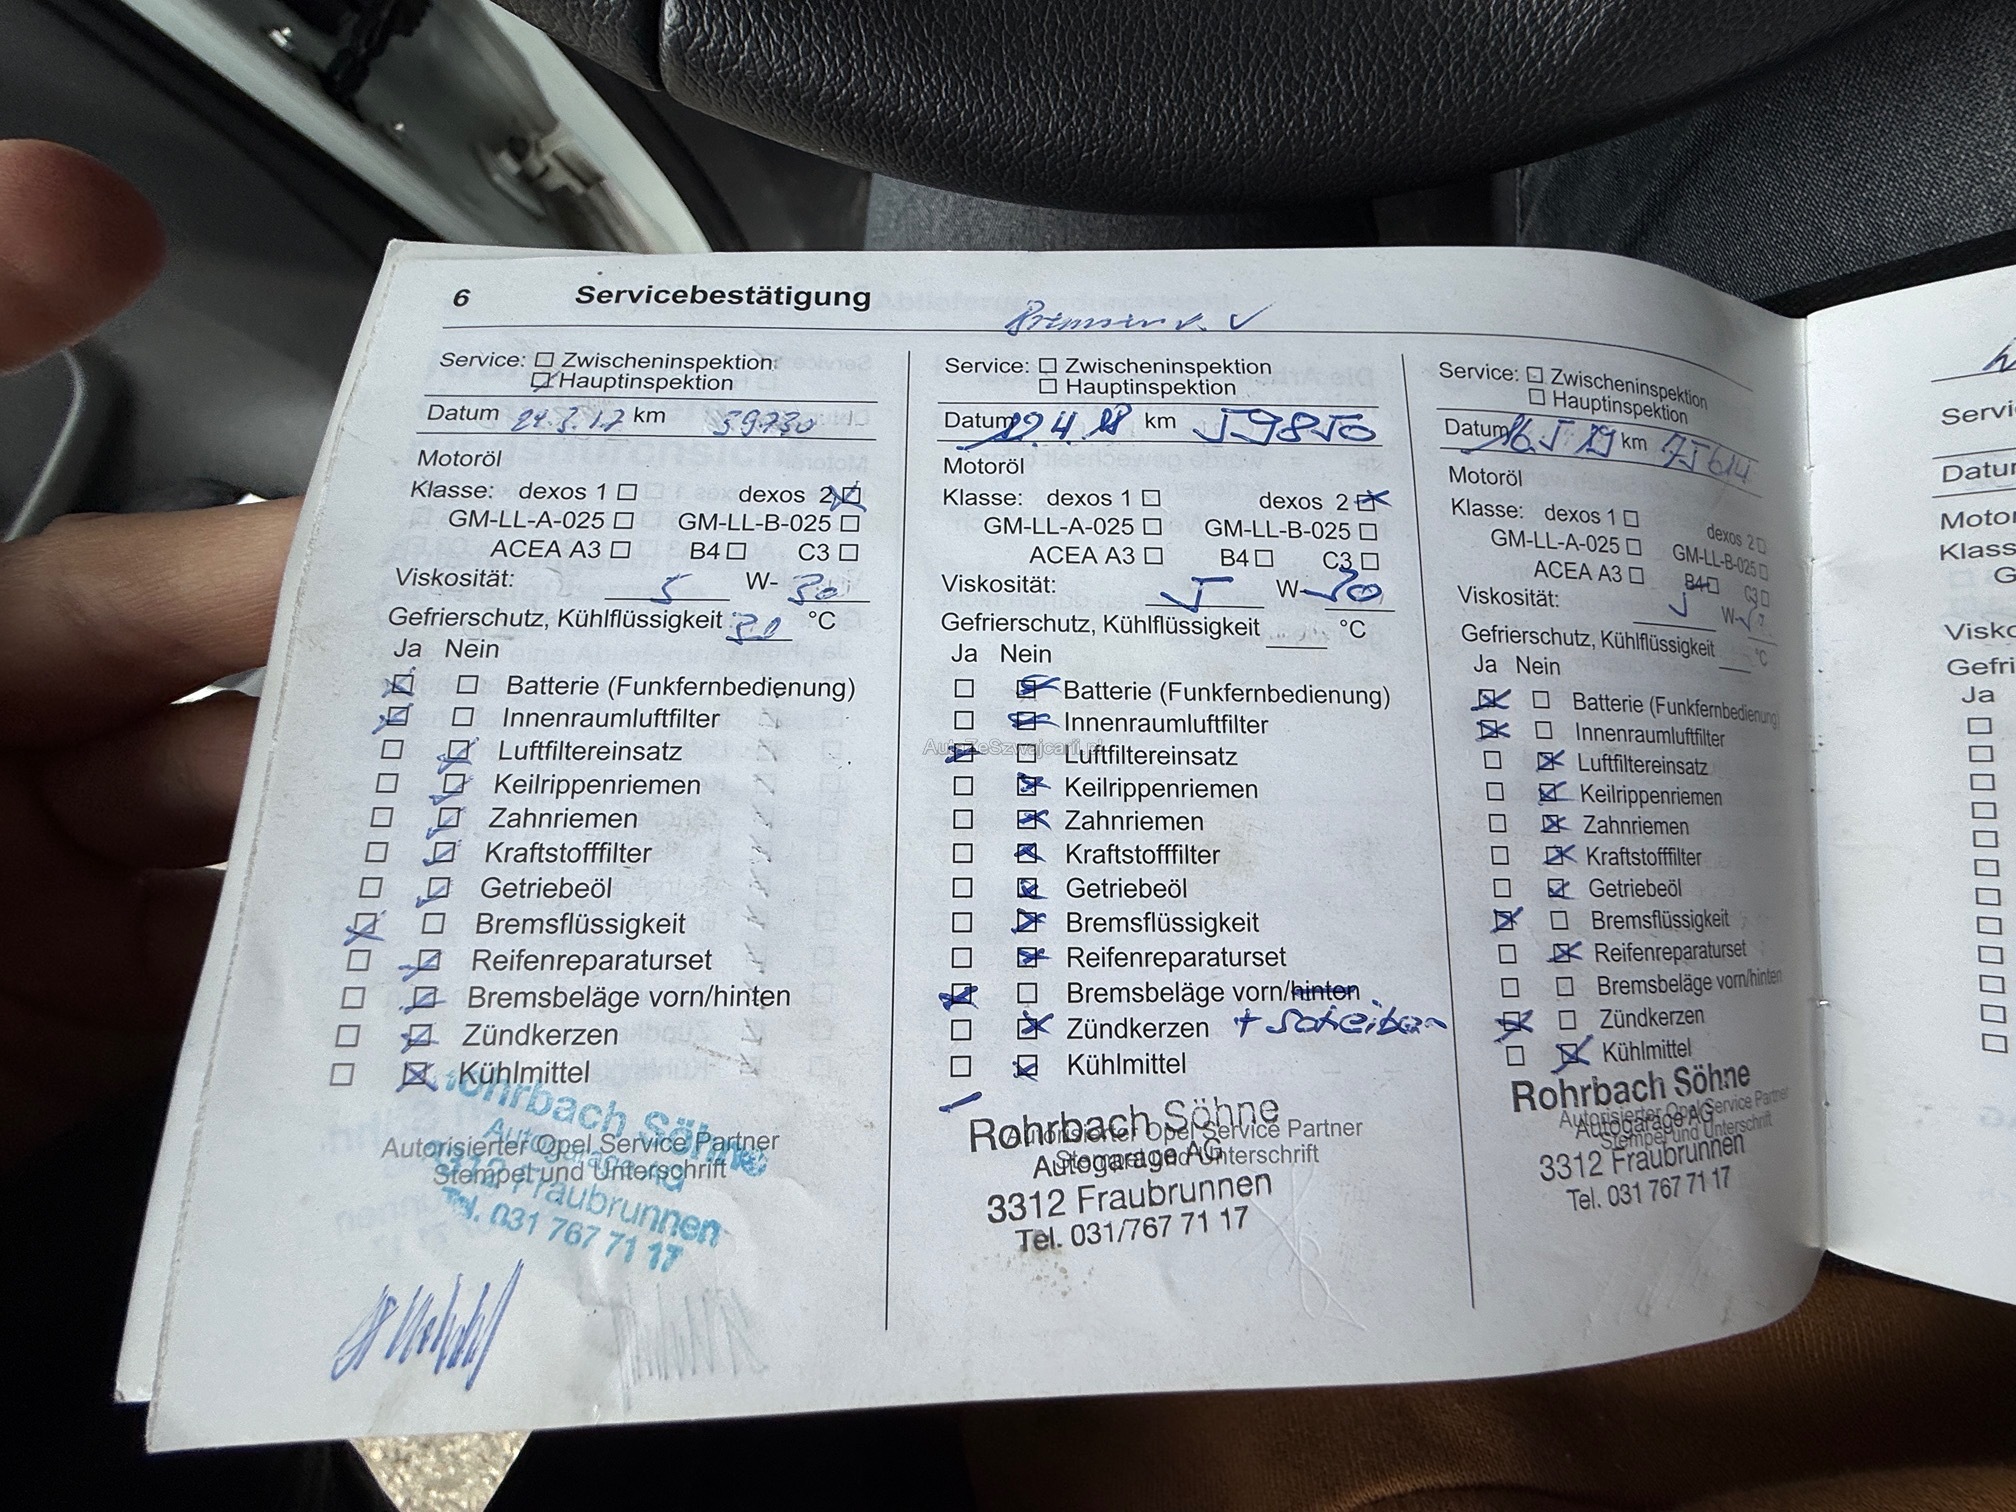 6 Servicebestätigung
Bremsen v. ✓
Service: ☐ Zwischeninspektion
☑ Hauptinspektion
Datum 21.3.17 km 39730
Motoröl
Klasse: dexos 1 ☐ dexos 2 ☒
GM-LL-A-025 ☐ GM-LL-B-025 ☐
ACEA A3 ☐ B4 ☐ C3 ☐
Viskosität: 5 W- 30
Gefrierschutz, Kühlflüssigkeit 30 °C
Ja Nein
☒ ☐ Batterie (Funkfernbedienung)
☒ ☐ Innenraumluftfilter
☐ ☒ Luftfiltereinsatz
☐ ☒ Keilrippenriemen
☐ ☒ Zahnriemen
☐ ☒ Kraftstofffilter
☐ ☒ Getriebeöl
☒ ☐ Bremsflüssigkeit
☐ ☒ Reifenreparaturset
☐ ☒ Bremsbeläge vorn/hinten
☐ ☒ Zündkerzen
☐ ☒ Kühlmittel
Rohrbach Söhne
Autorisierter Opel Service Partner
Autogarage
Stempel und Unterschrift
3312 Fraubrunnen
Tel. 031 767 71 17
Service: ☐ Zwischeninspektion
☐ Hauptinspektion
Datum 12.4.18 km 59850
Motoröl
Klasse: dexos 1 ☐ dexos 2 ☒
GM-LL-A-025 ☐ GM-LL-B-025 ☐
ACEA A3 ☐ B4 ☐ C3 ☐
Viskosität: 5 W- 30
Gefrierschutz, Kühlflüssigkeit °C
Ja Nein
☐ ☒ Batterie (Funkfernbedienung)
☐ ☒ Innenraumluftfilter
☒ ☐ Luftfiltereinsatz
AutaZeSzwajcarii.pl
☐ ☒ Keilrippenriemen
☐ ☒ Zahnriemen
☐ ☒ Kraftstofffilter
☐ ☒ Getriebeöl
☐ ☒ Bremsflüssigkeit
☐ ☒ Reifenreparaturset
☒ ☐ Bremsbeläge vorn/hinten
☐ ☒ Zündkerzen + Scheiben
☐ ☒ Kühlmittel
Rohrbach Söhne
Autorisierter Opel Service Partner
Autogarage AG
Stempel und Unterschrift
3312 Fraubrunnen
Tel. 031/767 71 17
Service: ☐ Zwischeninspektion
☐ Hauptinspektion
Datum 16.5.19 km 75614
Motoröl
Klasse: dexos 1 ☐ dexos 2 ☐
GM-LL-A-025 ☐ GM-LL-B-025 ☐
ACEA A3 ☐ B4 ☐ C3 ☐
Viskosität: 5 W-
Gefrierschutz, Kühlflüssigkeit °C
Ja Nein
☒ ☐ Batterie (Funkfernbedienung)
☒ ☐ Innenraumluftfilter
☐ ☒ Luftfiltereinsatz
☐ ☒ Keilrippenriemen
☐ ☒ Zahnriemen
☐ ☒ Kraftstofffilter
☐ ☒ Getriebeöl
☒ ☐ Bremsflüssigkeit
☐ ☒ Reifenreparaturset
☐ ☐ Bremsbeläge vorn/hinten
☒ ☐ Zündkerzen
☐ ☒ Kühlmittel
Rohrbach Söhne
Autorisierter Opel Service Partner
Autogarage AG
Stempel und Unterschrift
3312 Fraubrunnen
Tel. 031 767 71 17
Ja